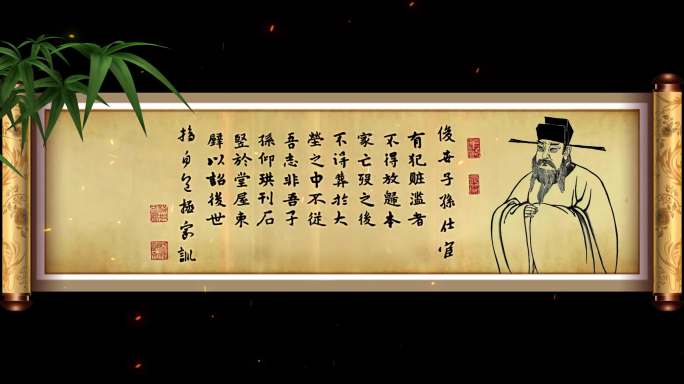 後世子孫仕宦
有犯赃濫者
不得放歸本
家亡殁之後
不得葬於大
塋之中不從
吾志非吾子
孫仰珙刊石
竪於堂屋東
壁以詔後世
摘自包拯家訓